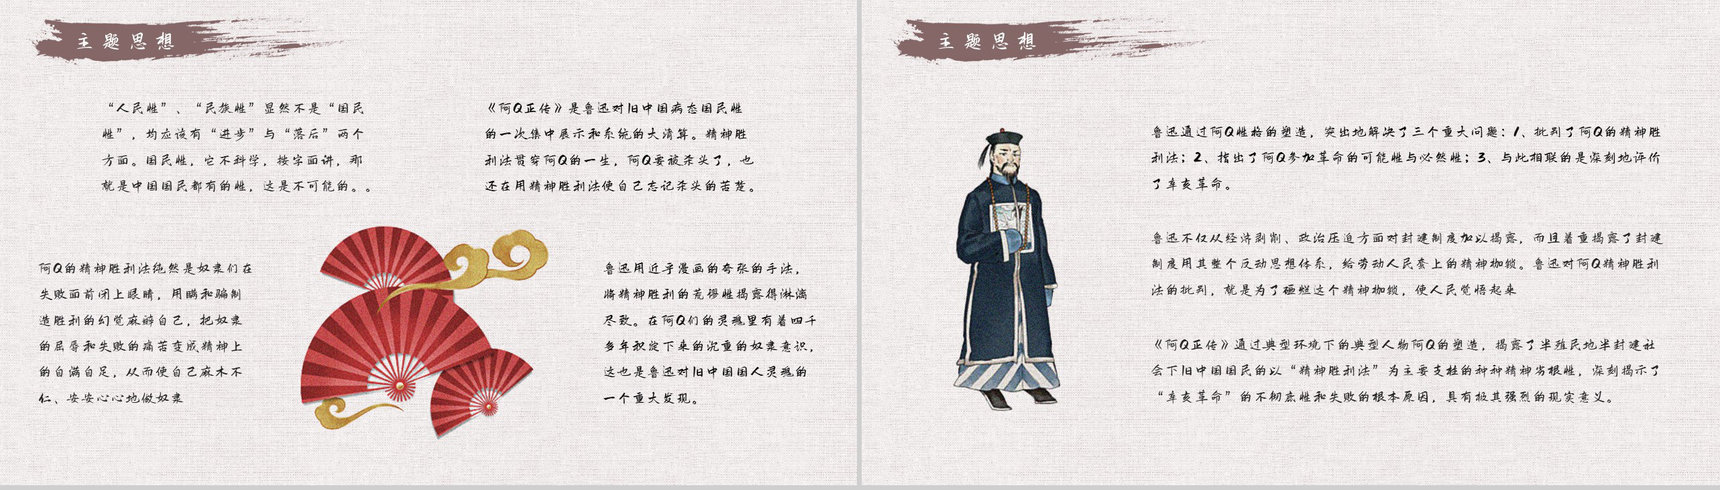 主题思想
“人民性”、“民族性”显然不是“国民
性”，均应该有“进步”与“落后”两个
方面。国民性，它不科学，按字面讲，那
就是中国国民都有的性，这是不可能的。。
《阿Q正传》是鲁迅对旧中国病态国民性
的一次集中展示和系统的大清算。精神胜
利法贯穿阿Q的一生，阿Q要被杀头了，也
还在用精神胜利法使自己忘记杀头的苦楚。
阿Q的精神胜利法纯然是奴隶们在
失败面前闭上眼睛，用瞒和骗制
造胜利的幻觉麻醉自己，把奴隶
的屈辱和失败的痛苦变成精神上
的自满自足，从而使自己麻木不
仁、安安心心地做奴隶
鲁迅用近乎漫画的夸张的手法，
将精神胜利的荒谬性揭露得淋漓
尽致。在阿Q们的灵魂里有着四千
多年积淀下来的沉重的奴隶意识，
这也是鲁迅对旧中国国人灵魂的
一个重大发现。
主题思想
鲁迅通过阿Q性格的塑造，突出地解决了三个重大问题：1、批判了阿Q的精神胜
利法；2、指出了阿Q参加革命的可能性与必然性；3、与此相联的是深刻地评价
了辛亥革命。
鲁迅不仅从经济剥削、政治压迫方面对封建制度加以揭露，而且着重揭露了封建
制度用其整个反动思想体系，给劳动人民套上的精神枷锁。鲁迅对阿Q精神胜利
法的批判，就是为了砸烂这个精神枷锁，使人民觉悟起来
《阿Q正传》通过典型环境下的典型人物阿Q的塑造，揭露了半殖民地半封建社
会下旧中国国民的以“精神胜利法”为主要支柱的种种精神劣根性，深刻揭示了
“辛亥革命”的不彻底性和失败的根本原因，具有极其强烈的现实意义。